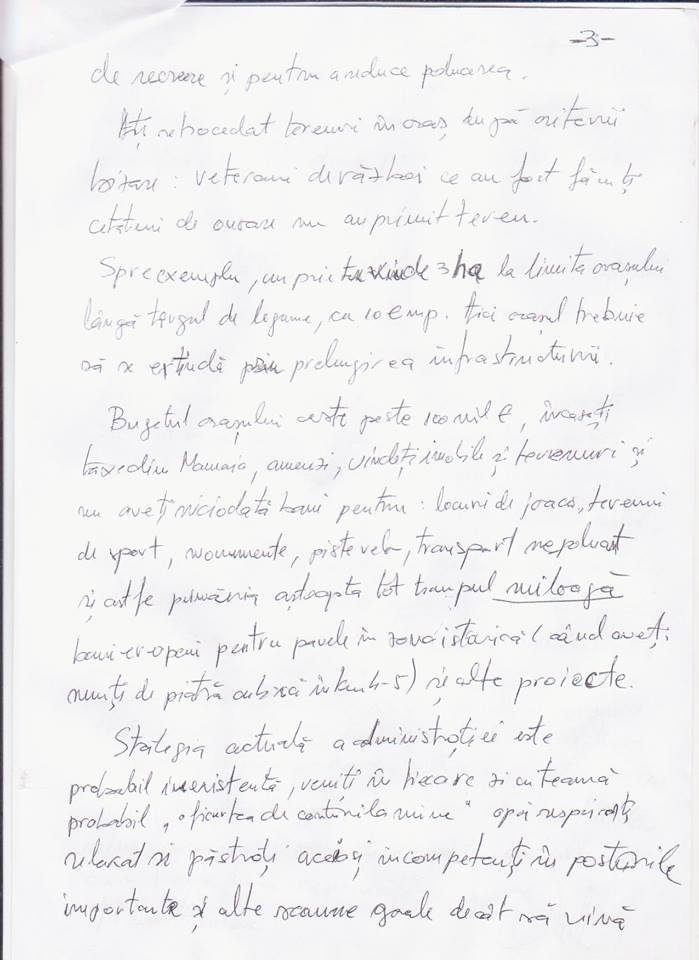 -3-
de recreere și pentru a reduce poluarea.
Ați retrocedat terenuri în oraș, după criterii
bizare: veterani de război ce au fost făcuți
cetățeni de onoare nu au primit teren.
Spre exemplu, un vinde 3 ha la limita orașului
lângă târgul de legume, cu 10€mp. Aici orașul trebuie
să se extindă prin prelungirea infrastructurii.
Bugetul orașului este peste 100 mil €, încasați
taxe din Mamaia, amenzi, vindeți imobile și terenuri și
nu aveți niciodată bani pentru: locuri de joacă, terenuri
de sport, monumente, piste velo, transport nepoluant
și astfe primăria așteapta tot timpul miloagă
bani europeni pentru pavele în zona istorică (când aveți
munți de piatră cubică în 4-5) și alte proiecte.
Strategia actuală a administrației este
probabil inexistentă, veniți în fiecare zi cu teamă
probabil „ de mine" apoi răspirați
relaxat și păstrați aceiași incompetenți în posturile
importante și alte scaune goale decât să vină